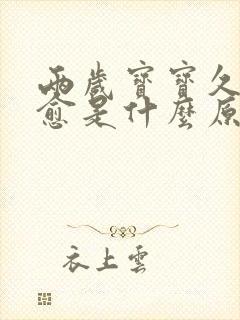 兩歲寶寶久
愈是什麼原
衣上雲